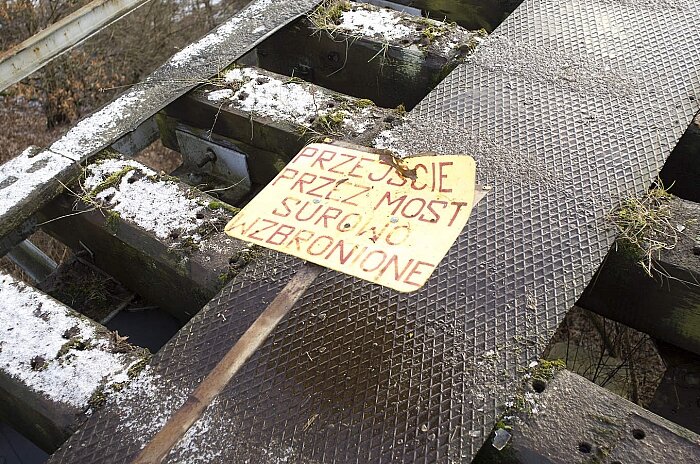 PRZEJŚCIE
PRZEZ MOST
SUROWO
WZBRONIONE